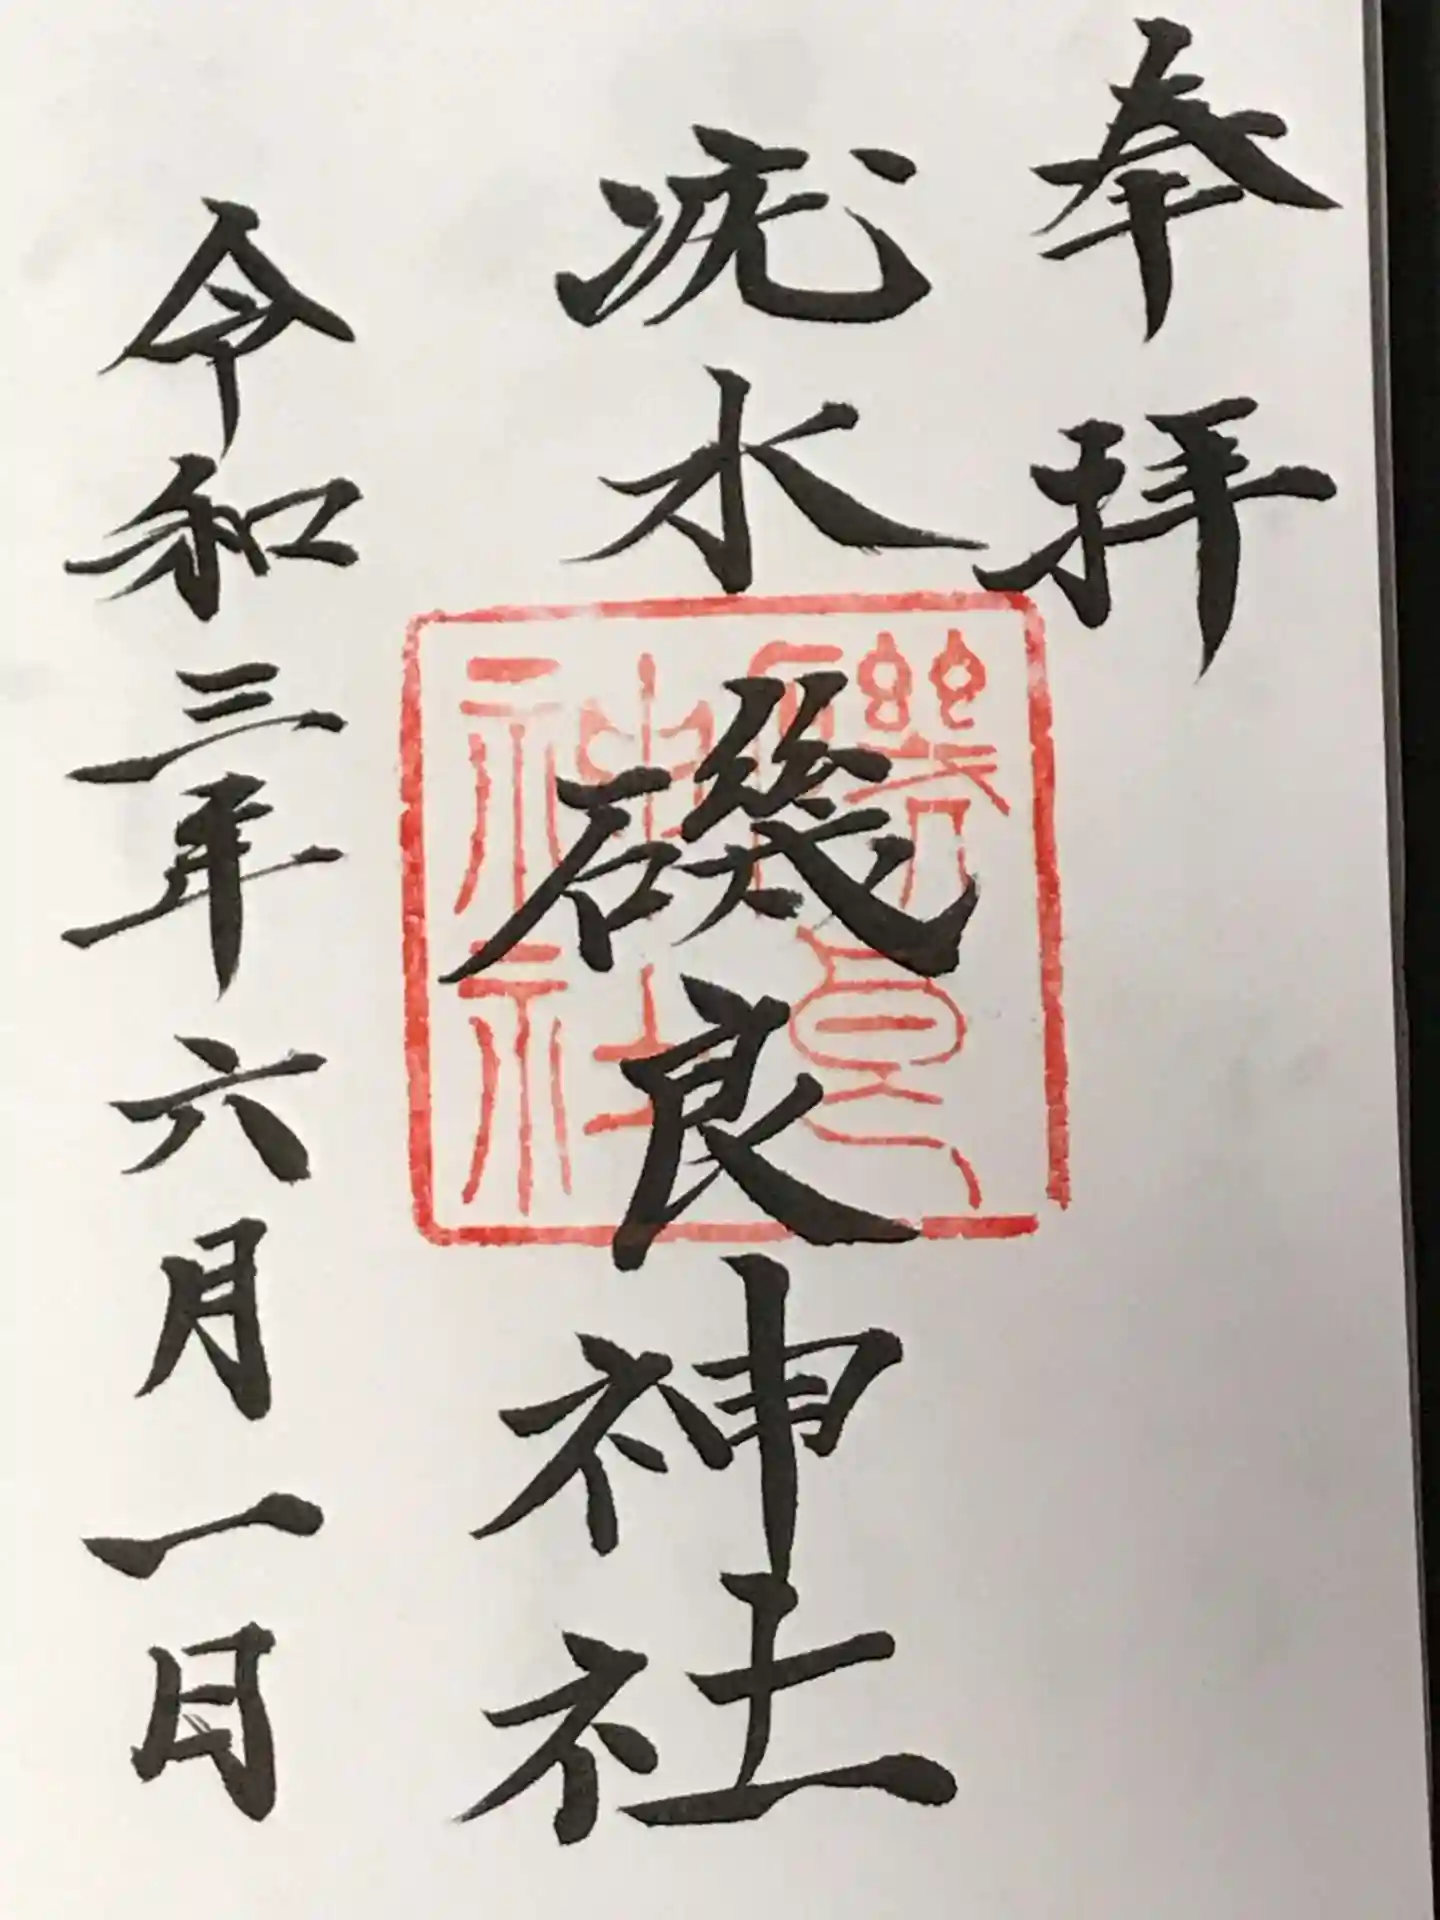 奉拝
疣水磯良神社
磯良
神社
令和三年六月一日